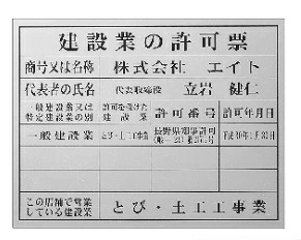 建設業の許可票
商号又は名称 株式会社 エイト
代表者の氏名 代表取締役 立岩 健仁
一般建設業又は特定建設業の別 許可を受けた建設業 許可番号 許可年月日
一般建設業 とび・土工工事業 長野県知事許可
この店舗で営業している建設業 とび・土工工事業